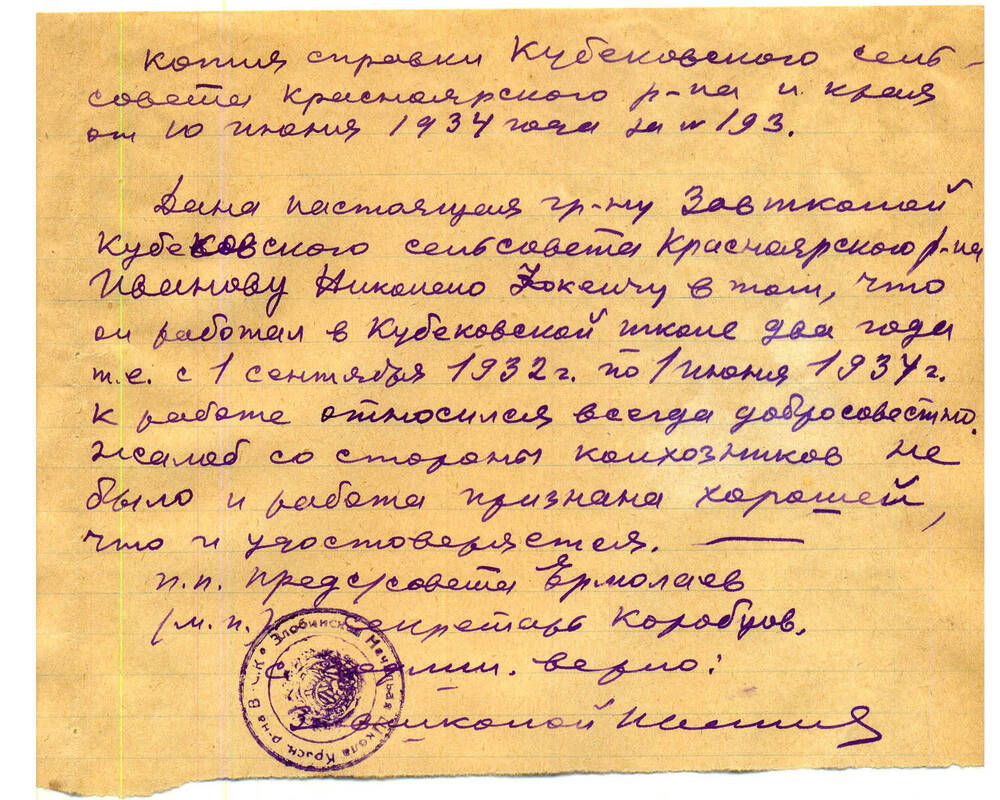 Копия справки Кубековского сель-
совета Красноярского р-на и края
от 10 июня 1934 года за № 193.
Дана настоящая гр-ну Завшколой
Кубековского сельсовета Красноярского р-на
Иванову Николаю в том, что
он работал в Кубековской школе два года
т.е. с 1 сентября 1932 г. по 1 июня 1934 г.
К работе относился всегда добросовестно.
Жалоб со стороны колхозников не
было и работа признана хорошей,
что и удостоверяется. —
п.п. Пред с/совета Ермолаев
(м.п.) Секретарь Коробцов.
С верно:
школой
Злобинская Начальная Школа Крсн. р-на В.С.К.